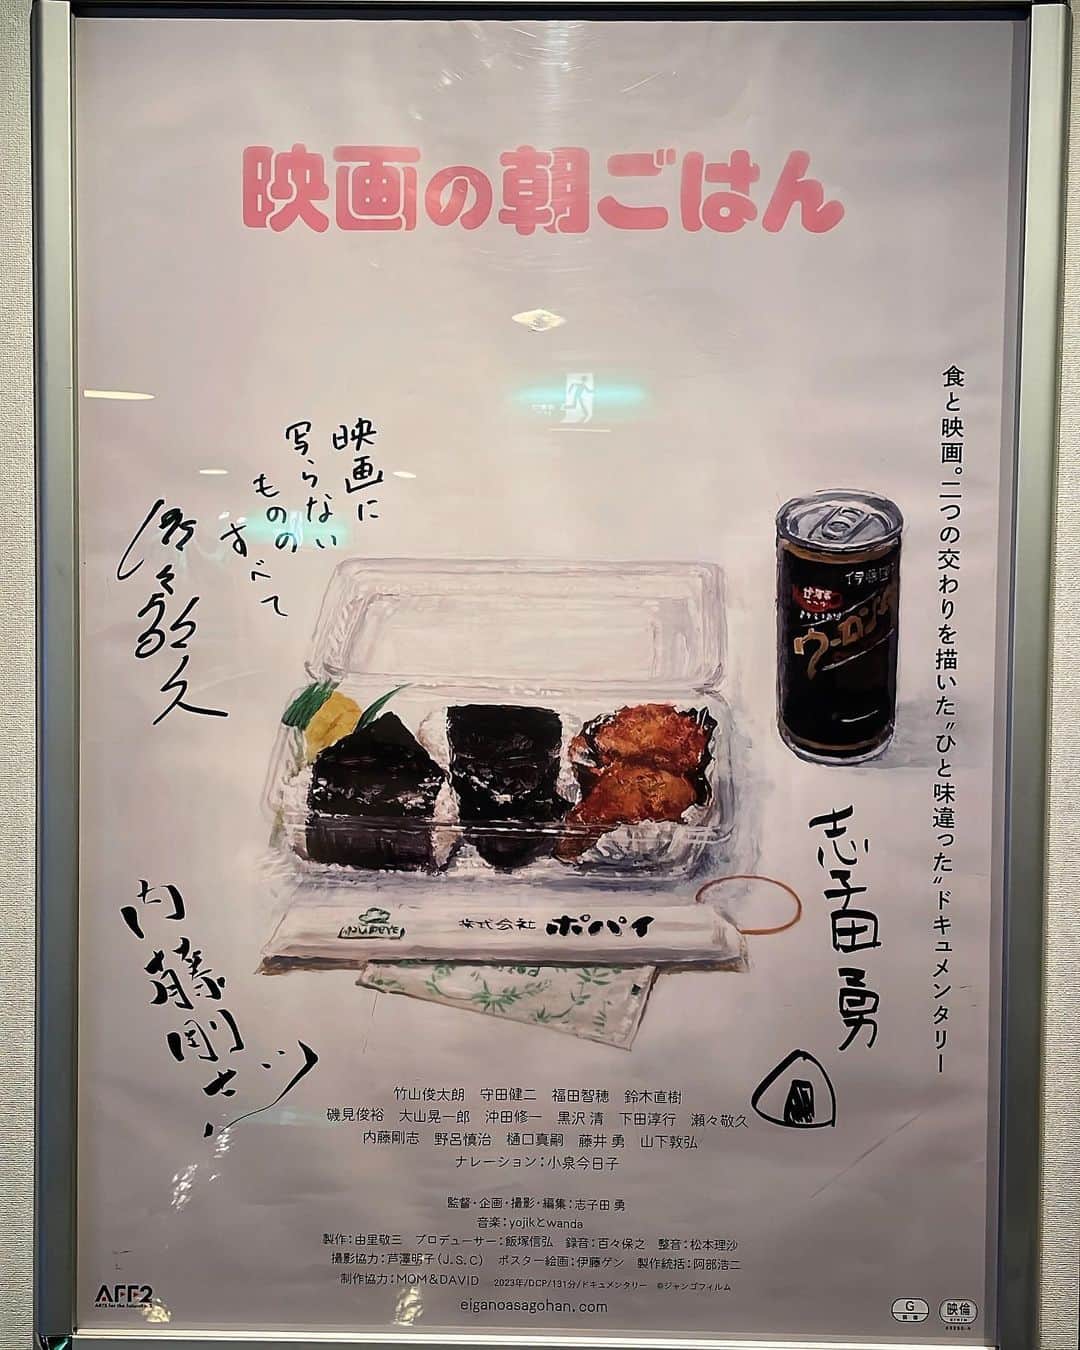 映画の朝ごはん
食と映画。二つの交わりを描いた“ひと味違った”ドキュメンタリー
映画に
写らない
ものの
すべて
瀬々敬久
ウーロン
株式会社 ポパイ
志子田 勇
内藤剛志
竹山俊太朗 守田健二 福田智穂 鈴木直樹
磯見俊裕 大山晃一郎 沖田修一 黒沢 清 下田淳行 瀬々敬久
内藤剛志 野呂慎治 樋口真嗣 藤井 勇 山下敦弘
ナレーション：小泉今日子
監督・企画・撮影・編集：志子田 勇
音楽：yojikとwanda
製作：由里敬三 プロデューサー：飯塚信弘 録音：百々保之 整音：松本理沙
撮影協力：芦澤明子（J.S.C） ポスター絵画：伊藤ゲン 製作統括：阿部浩二
制作協力：MOM&DAVID 2023年/DCP/131分/ドキュメンタリー ©ジャンゴフィルム
eiganoasagohan.com
AFF2
ARTS for the future! 2
G
映倫